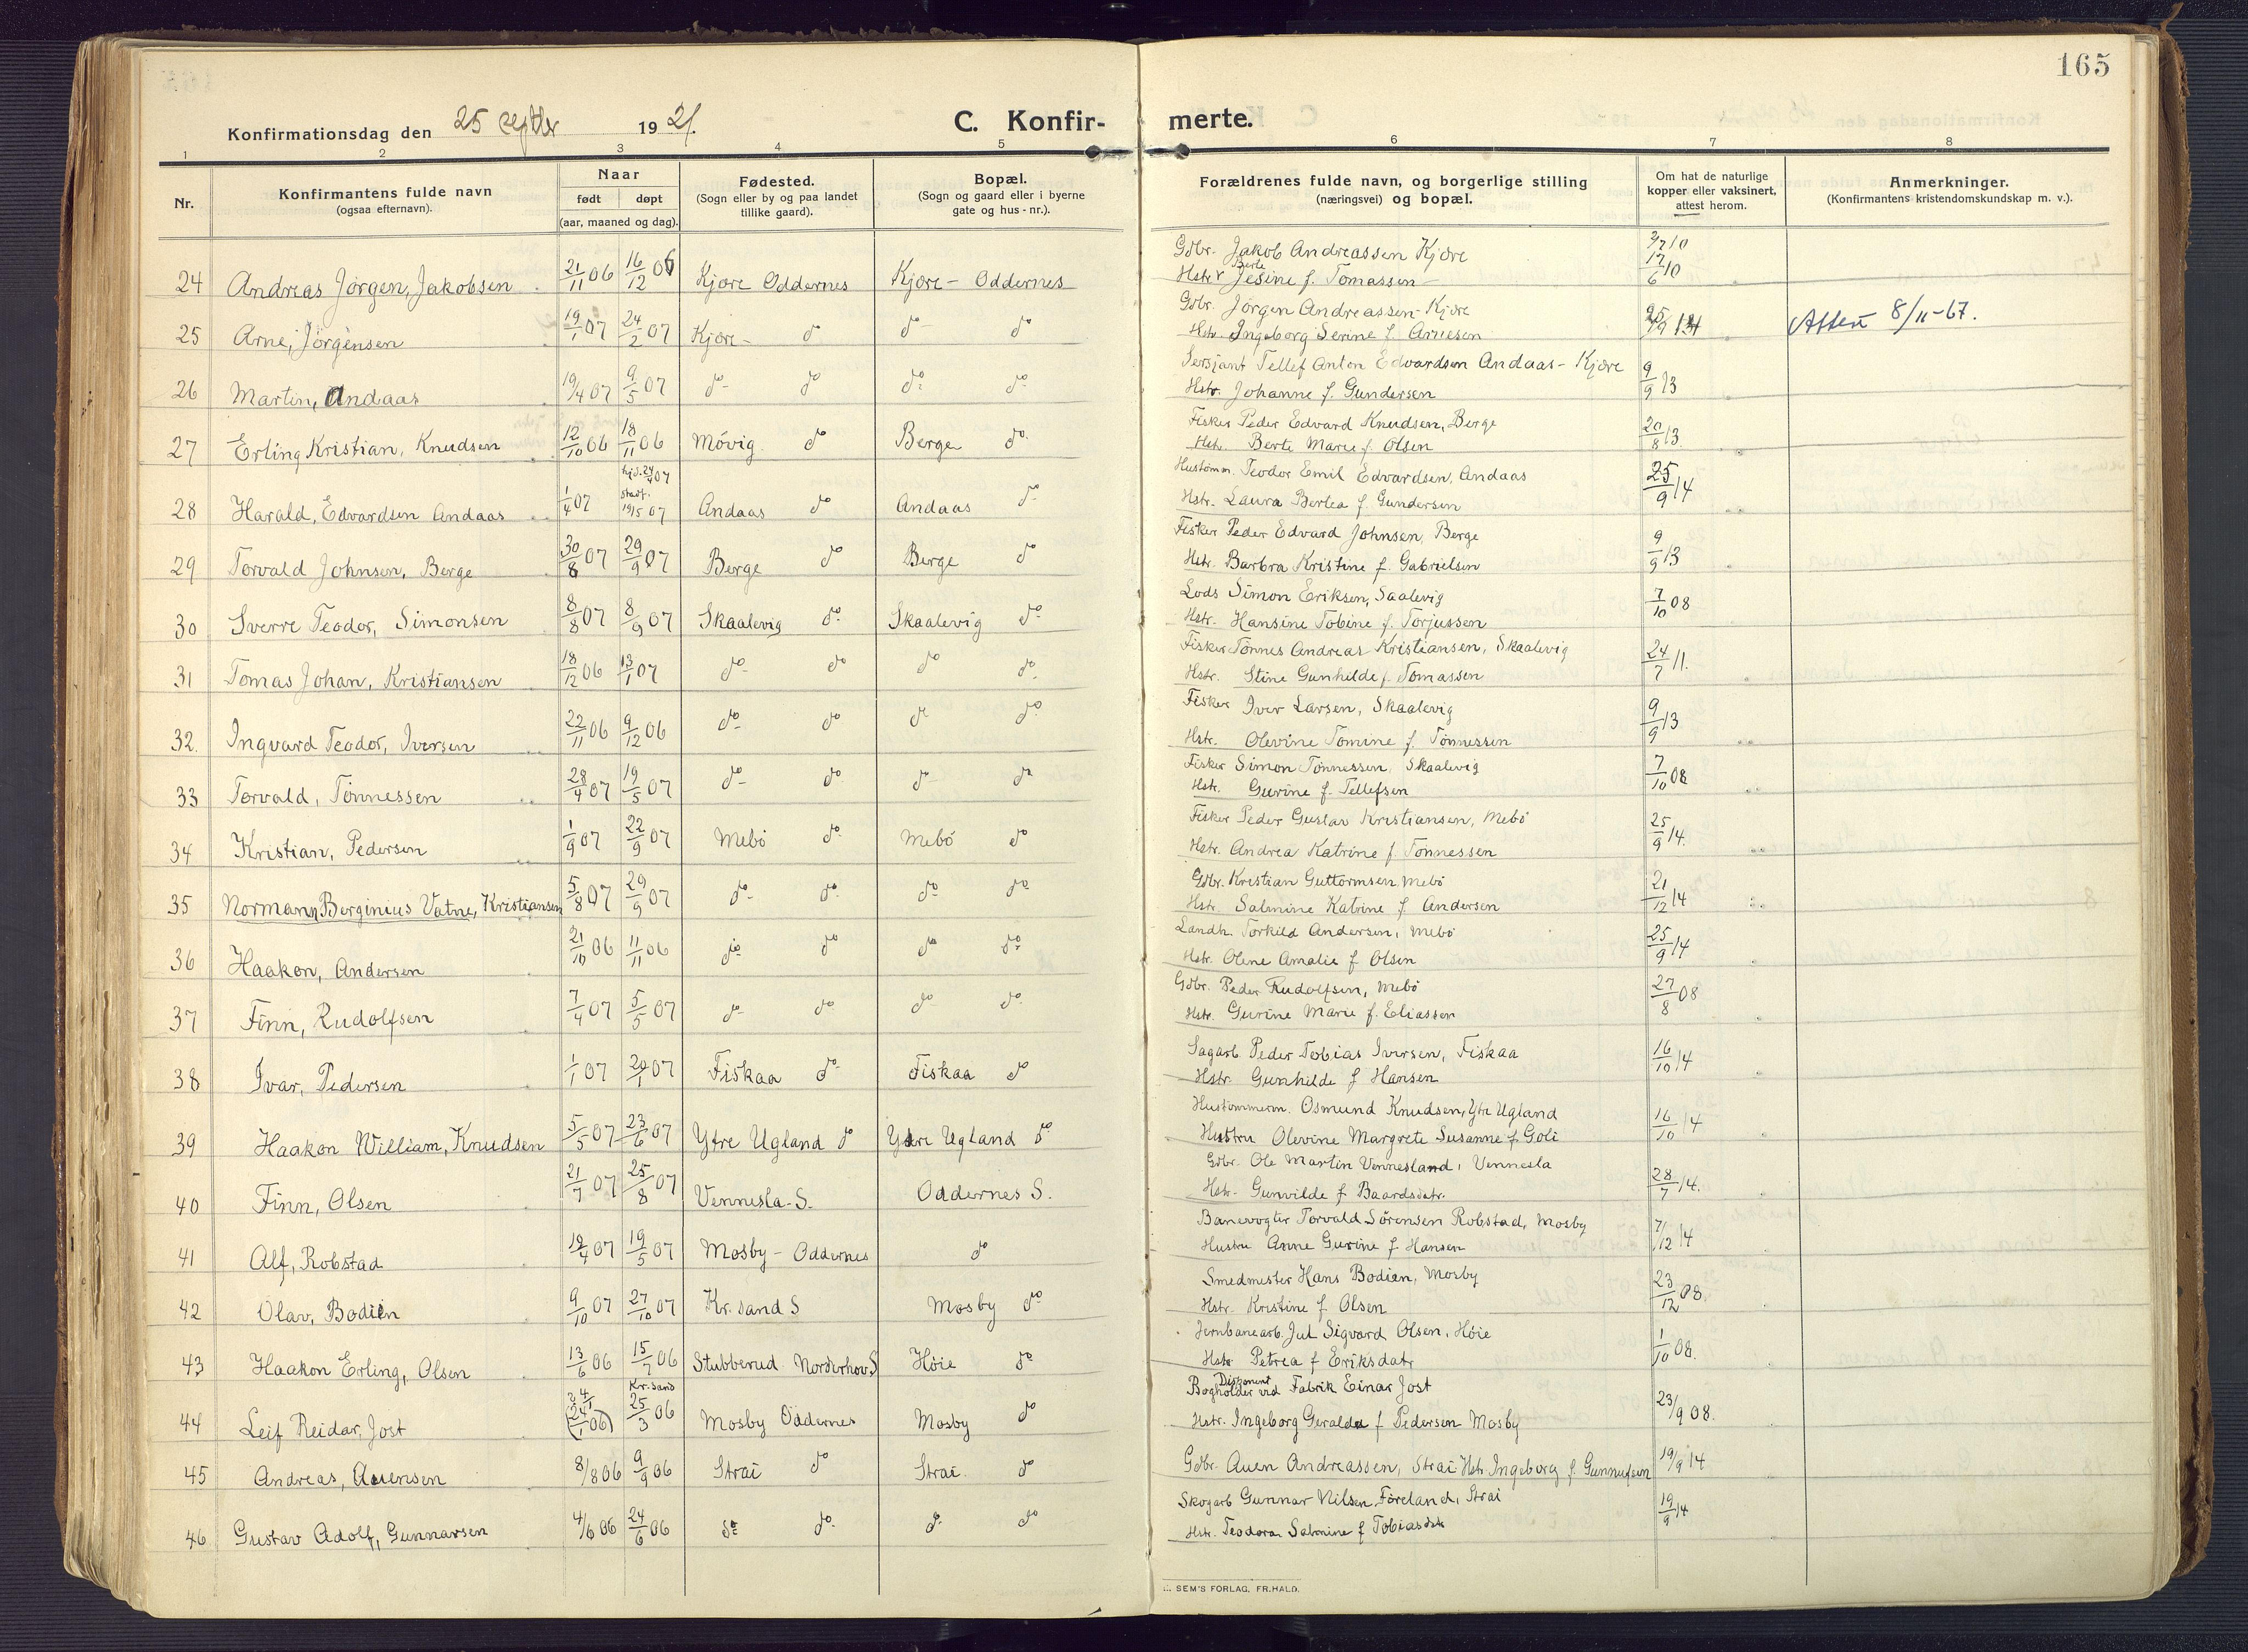 165
Konfirmationsdag den 25 septbr 1921.
C. Konfir-merte.
1 2 3 4 5 6 7 8
Nr.
Konfirmantens fulde navn
(ogsaa efternavn).
Naar
født døpt
(aar, maaned og dag).
Fødested.
(Sogn eller by og paa landet
tillike gaard).
Bopæl.
(Sogn og gaard eller i byerne
gate og hus-nr.).
Forældrenes fulde navn, og borgerlige stilling
(næringsvei) og bopæl.
Om hat de naturlige
kopper eller vaksinert,
attest herom.
Anmerkninger.
(Konfirmantens kristendomskundskap m. v.).
24 Andreas Jørgen, Jakobsen 21/11 06 16/12 06 Kjøre Oddernes Kjøre - Oddernes
Gdbr. Jakob Andreassen Kjøre
Hstr Berte Jesine f. Tomassen
25 Arne, Jörgensen 19/1 07 24/2 07 Kjøre - do do do
Gdbr. Jörgen Andreassen - Kjøre
Hstr. Ingeborg Serine f. Arnesen
Attest 8/11-67.
26 Martin, Andaas 19/4 07 9/5 07 do do do do
Sersjant Tellef Anton Edvardsen Andaas - Kjøre
Hstr. Johanne f. Gundersen 9/9 13
27 Erling Kristian, Knudsen 12/10 06 18/11 06 Móvig do Berge do
Fisker Peder Edvard Knudsen, Berge
Hstr. Berte Marie f. Olsen 20/8 13.
28 Harald, Edvardsen Andaas 1/4 07 hjd. 24/4 07 stadf. 19/5 07 Andaas do Andaas do
Hustömm. Teodor Emil Edvardsen, Andaas
Hstr. Laura Bertea f. Gundersen 25/9 14
29 Torvald Johnsen, Berge 30/8 07 29/9 07 Berge do Berge do
Fisker Peder Edvard Johnsen, Berge
Hstr. Barbra Kristine f. Gabrielsen 9/9 13
30 Sverre Teodor, Simonsen 8/8 07 8/9 07 Skaalevig do Skaalevig do
Lods Simon Eriksen, Saalevig
Hstr. Hansine Tobine f. Torjussen 7/10 08
31 Tomas Johan, Kristiansen 18/12 06 13/1 07 do do do do
Fisker Tönnes Andreas Kristiansen, Skaalevig
Hstr. Stine Gunhilde f. Tomassen 24/7 11.
32. Ingvard Teodor, Iversen 22/11 06 9/12 06 do do do do
Fisker Iver Larsen, Skaalevig
Hstr. Olevine Tomine f. Tönnessen 9/9 13
33 Torvald, Tönnessen 28/4 07 19/5 07 do do do do
Fisker Simon Tönnessen, Skaalevig
Hstr. Gurine f. Tellefsen 7/10 08
34 Kristian, Pedersen 1/9 07 22/9 07 Mebö do Mebö do
Fisker Peder Gustav Kristiansen, Mebö
Hstr. Andrea Katrine f. Tönnessen 25/9 14.
35 Normann Berginius Vatne, Kristiansen 5/8 07 29/9 07 do do do do
Gdbr. Kristian Guttormsen Mebö
Hstr. Salmine Katrine f. Andersen 21/12 14
36 Haakon, Andersen 21/10 06 11/11 06 do do do do
Landh. Torkild Andersen, Mebö
Hstr. Olene Amalie f Olsen 25/9 14
37 Finn, Rudolfsen 7/4 07 5/5 07 do do do do
Gdbr. Peder Rudolfsen, Mebö
Hstr. Gurine Marie f. Eliassen 27/8 08
38 Ivar, Pedersen 1/1 07 20/1 07 Fiskaa do Fiskaa do
Sagarb. Peder Tobias Iversen, Fiskaa
Hstr. Gunhilde f Hansen 16/10 14
39 Haakon William, Knudsen 5/5 07 23/6 07 Ytre Ugland do Ytre Ugland do
Hustömmerm. Osmund Knudsen, Ytre Ugland
Hustru Olevine Margrete Susanne f. Goli 16/10 14
40 Finn, Olsen 21/7 07 25/8 07 Vennesla - S. Oddernes S.
Gdbr. Ole Martin Vennesland, Vennesla
Hstr. Gunvilde f Baardsdatr. 28/7 14.
41 Alf, Robstad 12/4 07 19/5 07 Mosby - Oddernes do
Banevogter Torvald Sörensen Robstad, Mosby
Hustru Anne Gurine f Hansen 7/12 14
42 Olav, Bodien 9/10 07 27/10 07 Kr. sand S Mosby do
Smedmester Hans Bodien, Mosby
Hstr. Kristine f. Olsen 23/12 08.
43 Haakon Erling, Olsen 13/6 06 15/7 06 Stubberud Norderhov S Höie do
Jernbanearb. Jul Sigvard Olsen, Höie
Hstr Petrea f Eriksdatr 1/10 08.
44 Leif Reidar, Jost 24/1 (24/1 06) Kr. sand 25/3 06 Mosby Oddernes Mosby do
Disponent Bogholder ved Fabrik Einar Jost
Hstr. Ingeborg Geralda f Pedersen Mosby 23/9 08.
45 Andreas, Auensen 8/8 06 9/9 06 Strai do Strai. do
Gdbr. Auen Andreassen, Strai Hstr. Ingeborg f. Gunnufsen 19/9 14
46 Gustav Adolf, Gunnarsen 4/6 06 24/6 06 do do do do
Skogarb Gunnar Nilsen Föreland, Strai
Hstr. Teodora Salmine f Tobiasdtr 19/9 14
SEM'S FORLAG, FR.HALD.